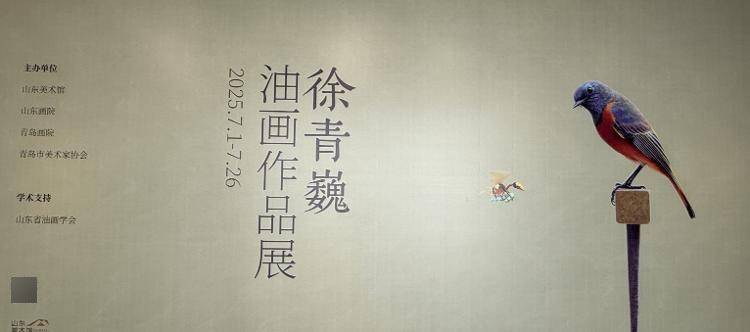 徐青巍
油画作品展
2025.7.1-7.26
主办单位
山东美术馆
山东画院
青岛画院
青岛市美术家协会
学术支持
山东省油画学会
山东
美术馆